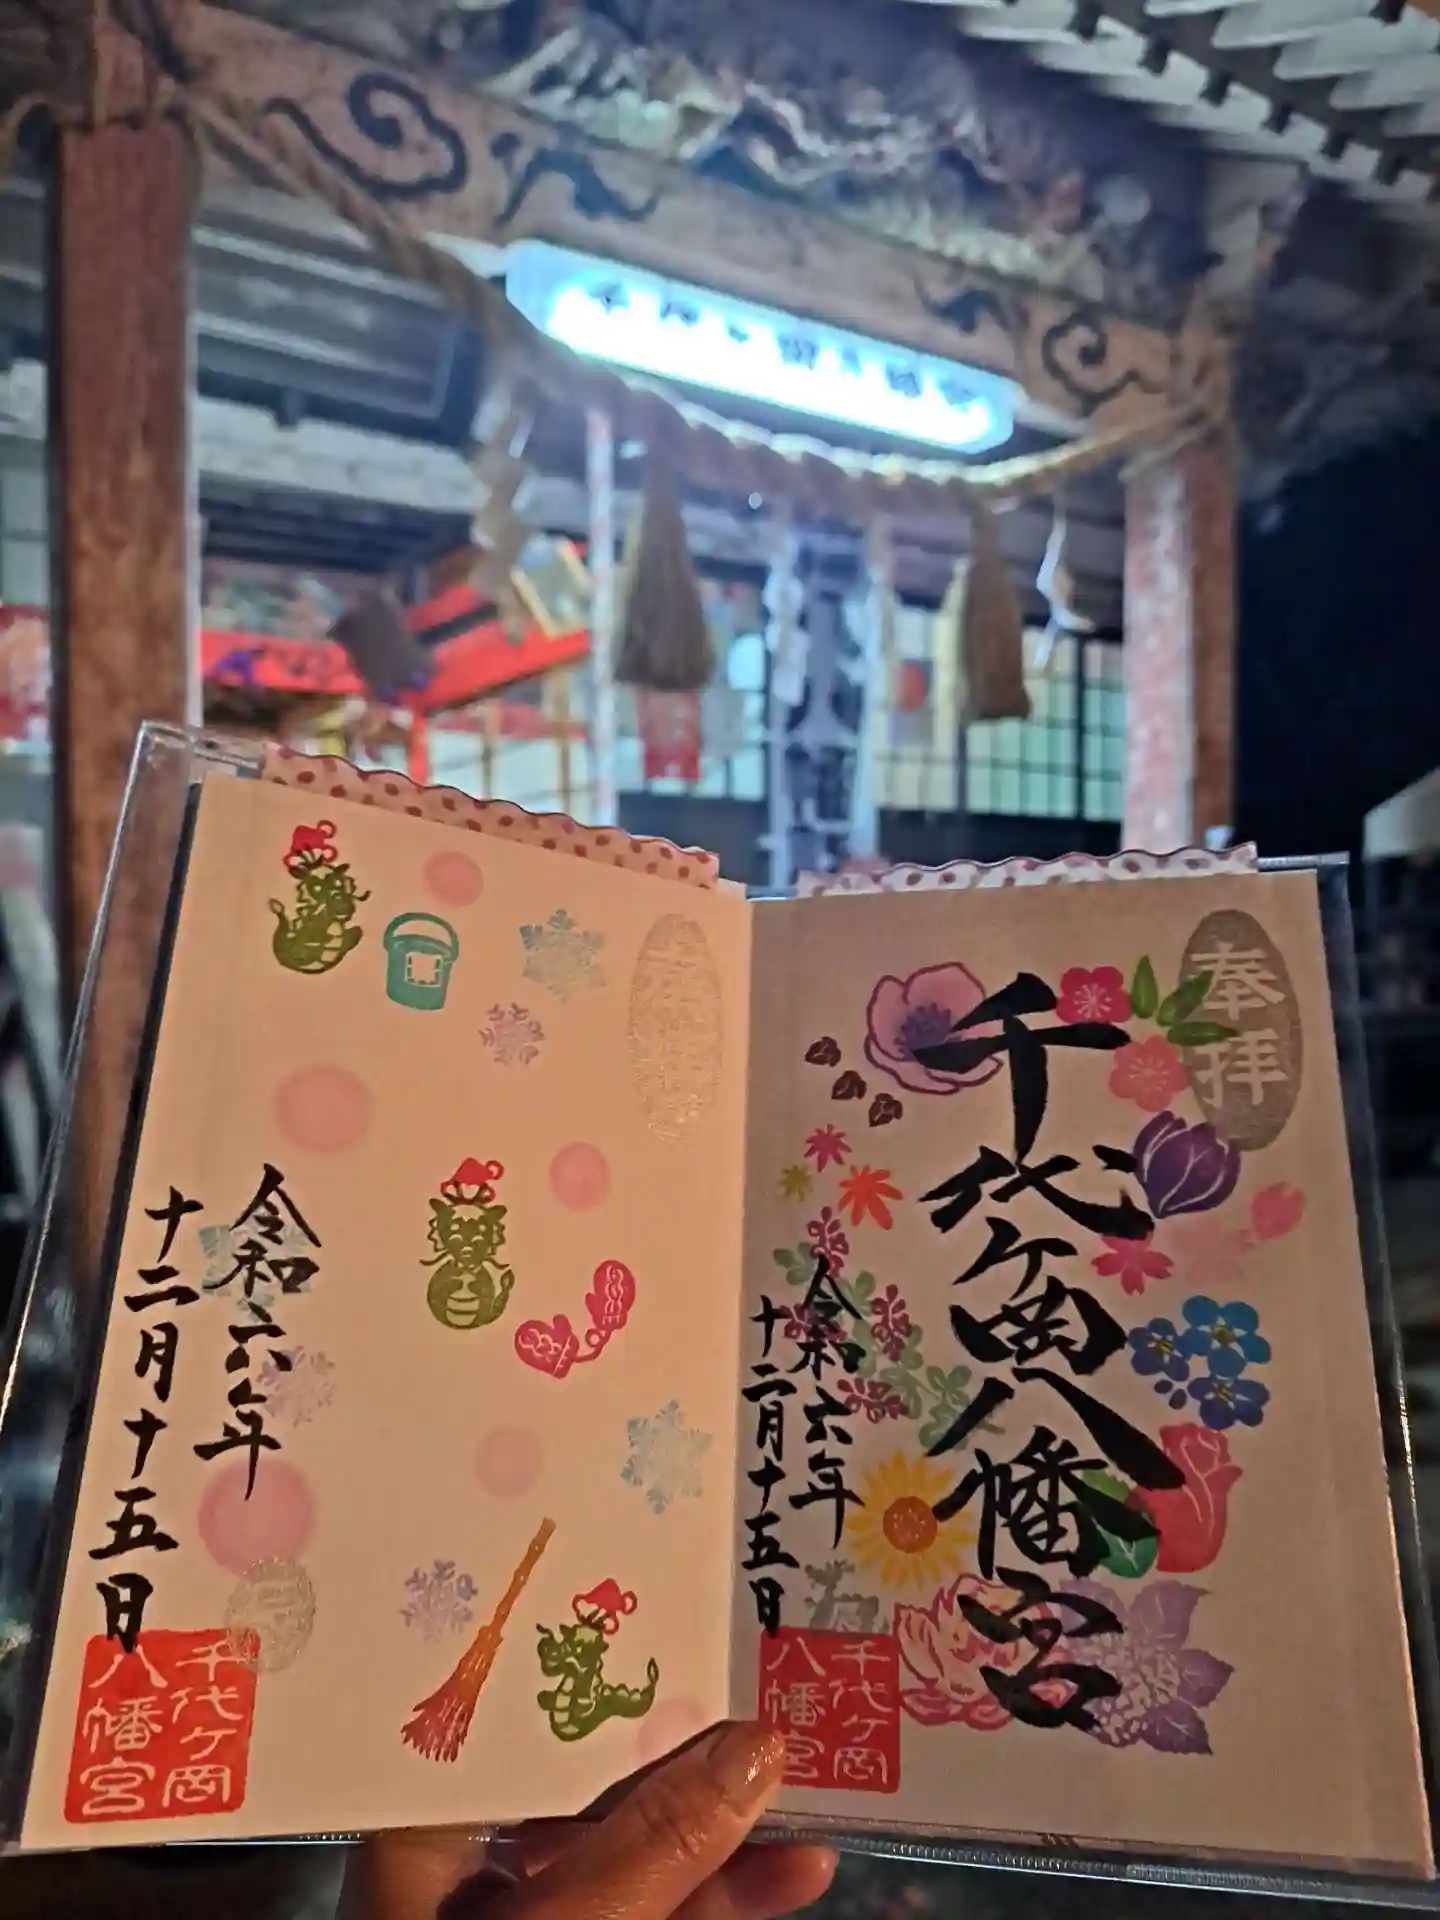 千代ケ岡八幡宮
奉拝
千代ケ岡八幡宮
令和六年
十二月十五日
千代ケ岡
八幡宮
令和六年
十二月十五日
千代ケ岡
八幡宮